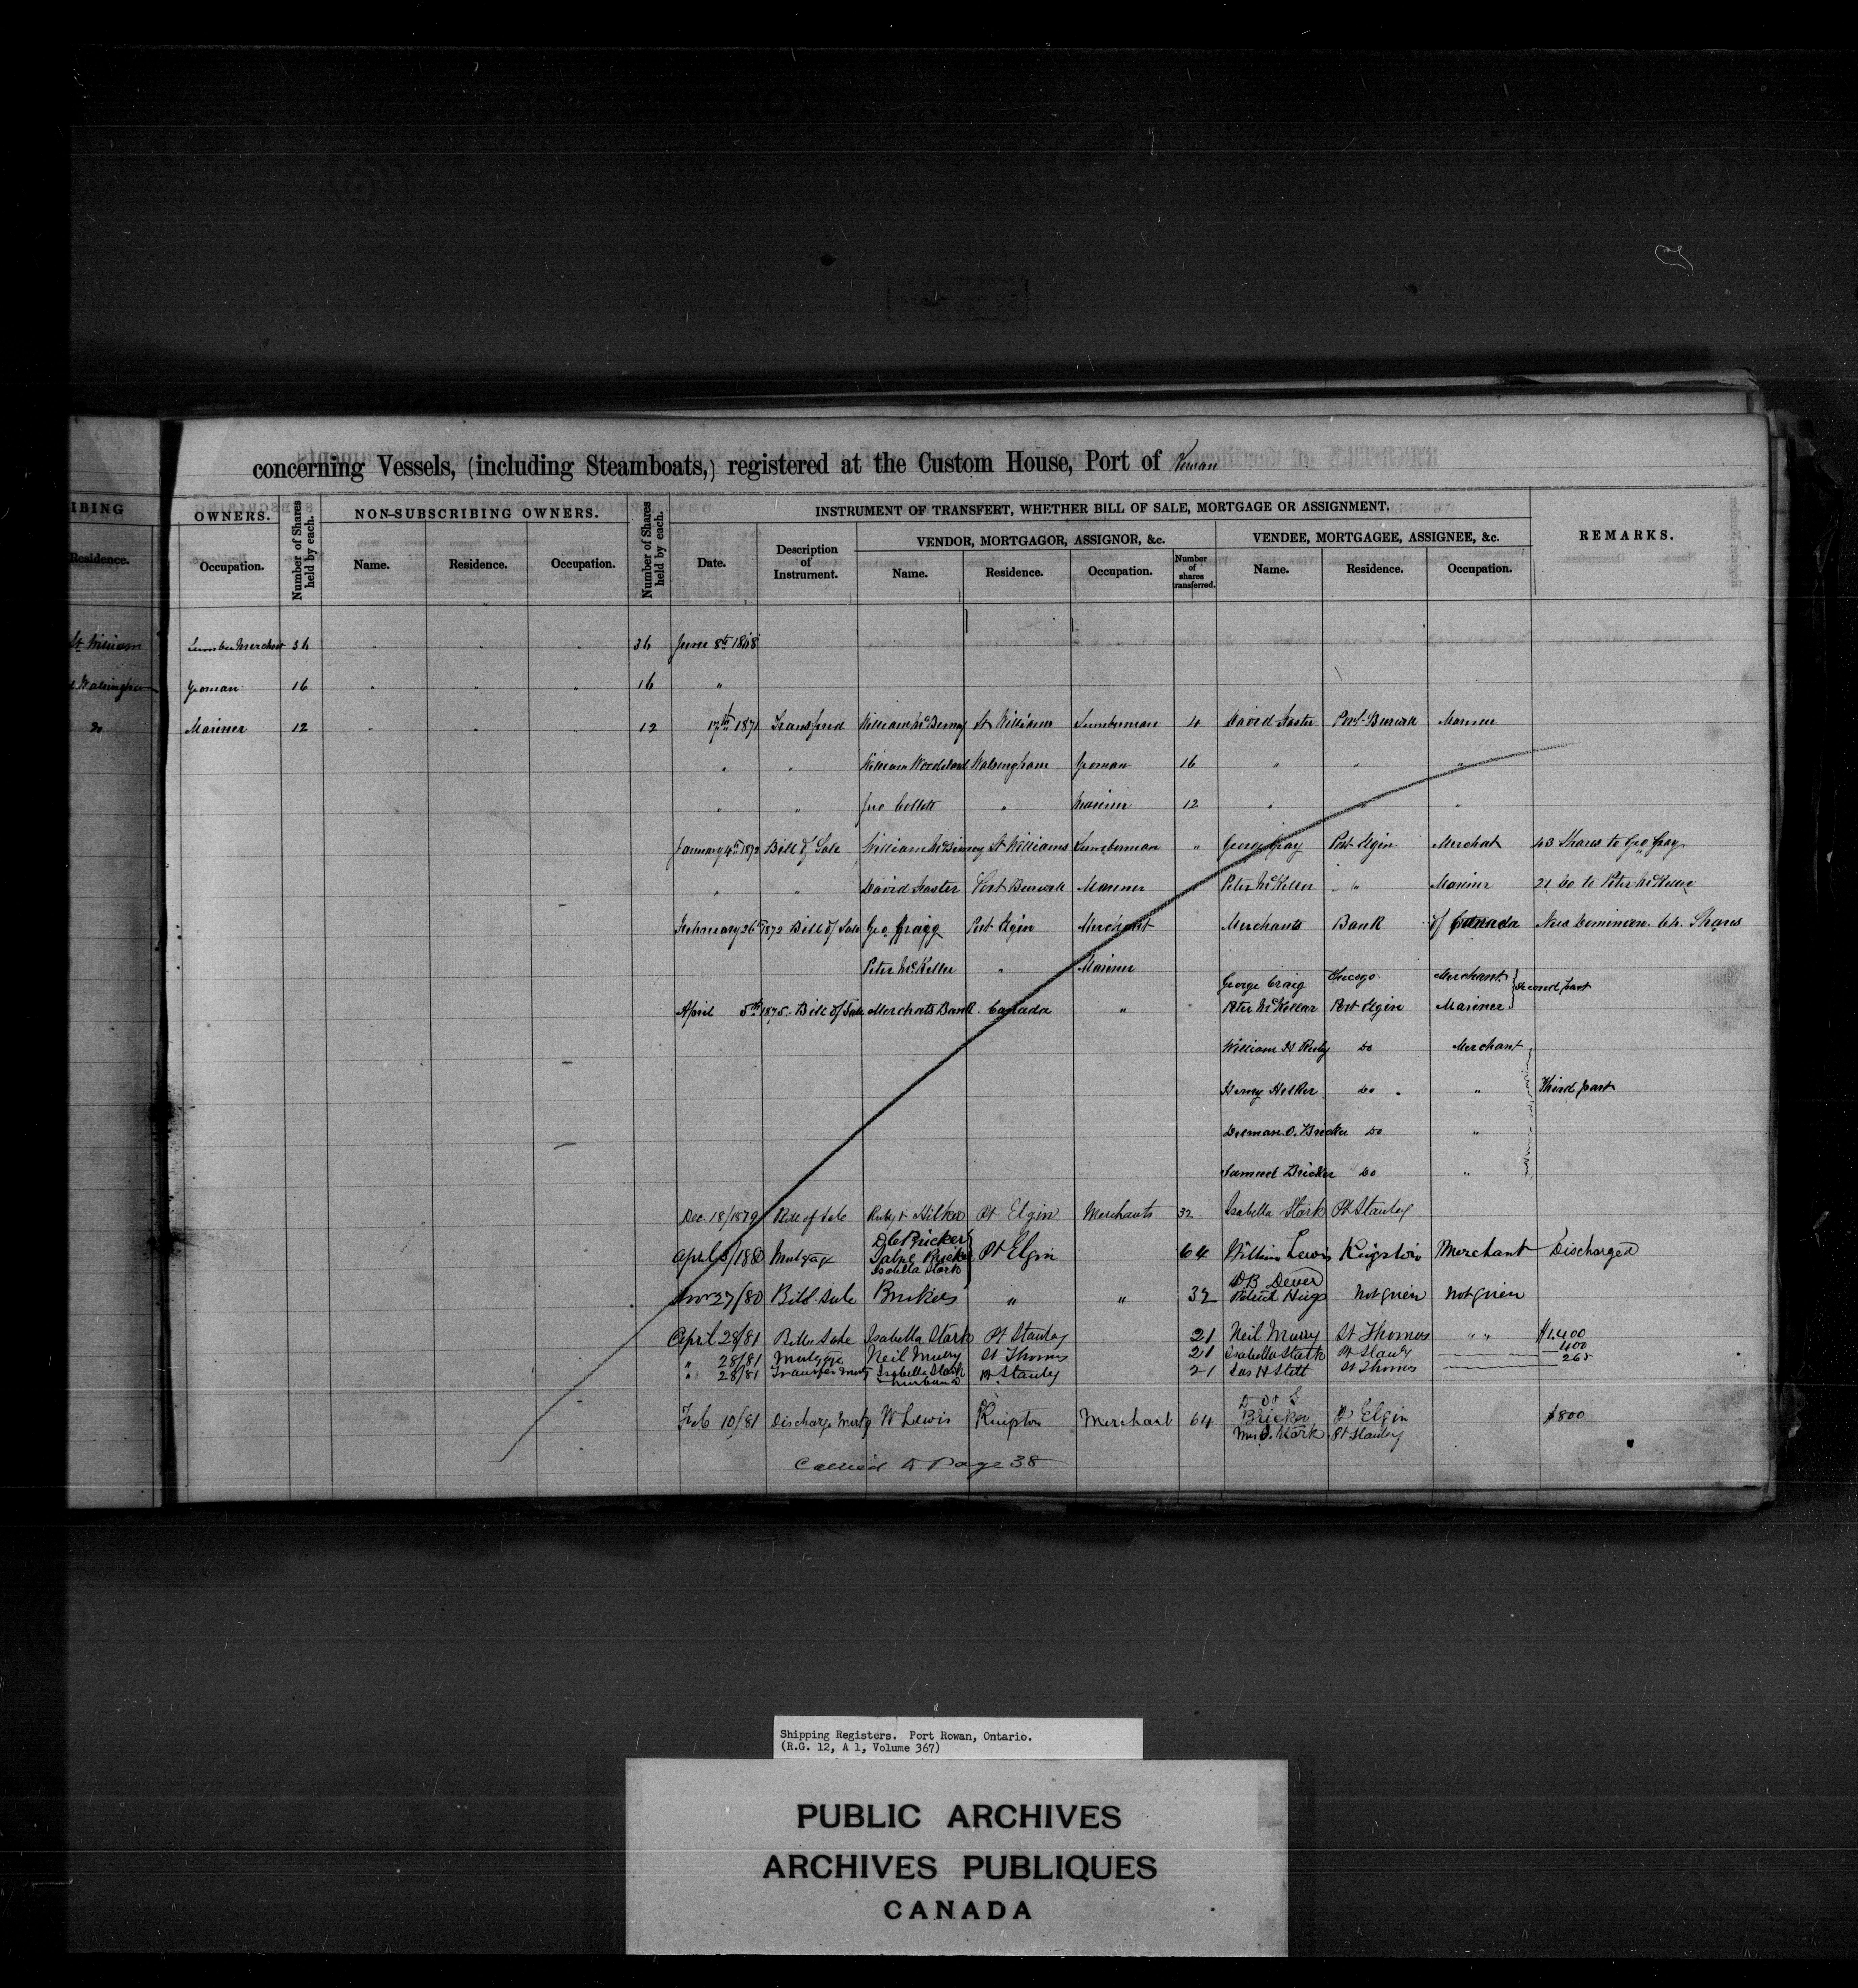 concerning Vessels, (including Steamboats,) registered at the Custom House, Port of Rowan
IBING
OWNERS.
Number of Shares held by each.
NON-SUBSCRIBING OWNERS.
Number of Shares held by each.
INSTRUMENT OF TRANSFERT, WHETHER BILL OF SALE, MORTGAGE OR ASSIGNMENT.
REMARKS.
VENDOR, MORTGAGOR, ASSIGNOR, &c.
VENDEE, MORTGAGEE, ASSIGNEE, &c.
Residence.
Occupation.
Name.
Residence.
Occupation.
Date.
Description of Instrument.
Name.
Residence.
Occupation.
Number of shares transferred.
Name.
Residence.
Occupation.
St William Lumber Merchant 36 " " " 36 June 8th 1868
Walsingham Yeoman 16 " " " 16 "
Do Mariner 12 " " " 12 17th 1871 Transfered William McBurney St Williams Lumberman 4 David Foster Port Burwell Mariner
" " William Woodward Walsingham Yeoman 16 " " "
" " Jno Collett " Mariner 12 " " "
January 4th 1872 Bill of Sale William McBurney St Williams Lumberman " George Gray Port Elgin Merchat 43 Shares to Geo Gray
" " David Foster Port Burwell Mariner Peter McKeller " Mariner 21 Do to Peter McKeller
February 26th 1872 Bill of Sale Geo Port Elgin Merchant Merchants Bank of Canada New Dominion. 64. Shares
Peter McKeller " Mariner
George Craig Chicago Merchant
April 5th 1875. Bill of Sale Merchats Bank Canada " Peter McKellar Port Elgin Mariner Second part
William H Ruby Do Merchant
Henry Hilker Do " Third part
Dilman. O. Bricker Do "
Samuel Bricker Do "
Dec 18/1879 Bill of Sale Ruby & Hilker Pt Elgin Merchants 32 Isabella Stark Pt Stanley
D C Bricker
April 5/1880 Mortgage Bricker Pt Elgin 64 William Lewis Kingston Merchant Discharged
Isabella Stark
D B Dever
Nov 27/80 Bill. Sale Brickers " " 32 Patrick Not Given Not Given
April 28/81 Bill Sale Isabella Stark Pt Stanley 21 Neil Murry St Thomas " " $1.400
" 28/81 Mortgage Neil Murry St Thomas 21 Isabella Stark Pt Stanly 400
" 28/81 Transfer Mortg Isabella Stark Pt Stanley 21 Jas H Still St Thomas 265
husband
D & S
Feb 10/81 Discharge Mortg W Lewis Kingston Merchant 64 Bricker Pt Elgin $800
Mrs I. Stark Pt Stanley
Carried to Page 38
Shipping Registers. Port Rowan, Ontario.
(R.G. 12, A 1, Volume 367)
PUBLIC ARCHIVES
ARCHIVES PUBLIQUES
CANADA